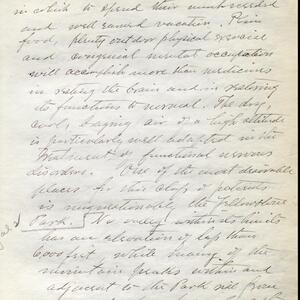 in which to spend their much needed
and well earned vacation. Plain
food, plenty outdoor physical exercise
and congenial mental occupation
will accomplish more than medicines
in resting the brain and in restoring
its functions to normal. The dry,
cool, bracing air of a high altitude
is particularly well adapted in the
treatment of functional nervous
disorders. One of the most desirable
places for this class of patients
is unquestionably the Yellowstone
Park. No valley within its limits
has an elevation of less than
6000 feet, while many of the
mountain peaks within and
adjacent to the Park rise from